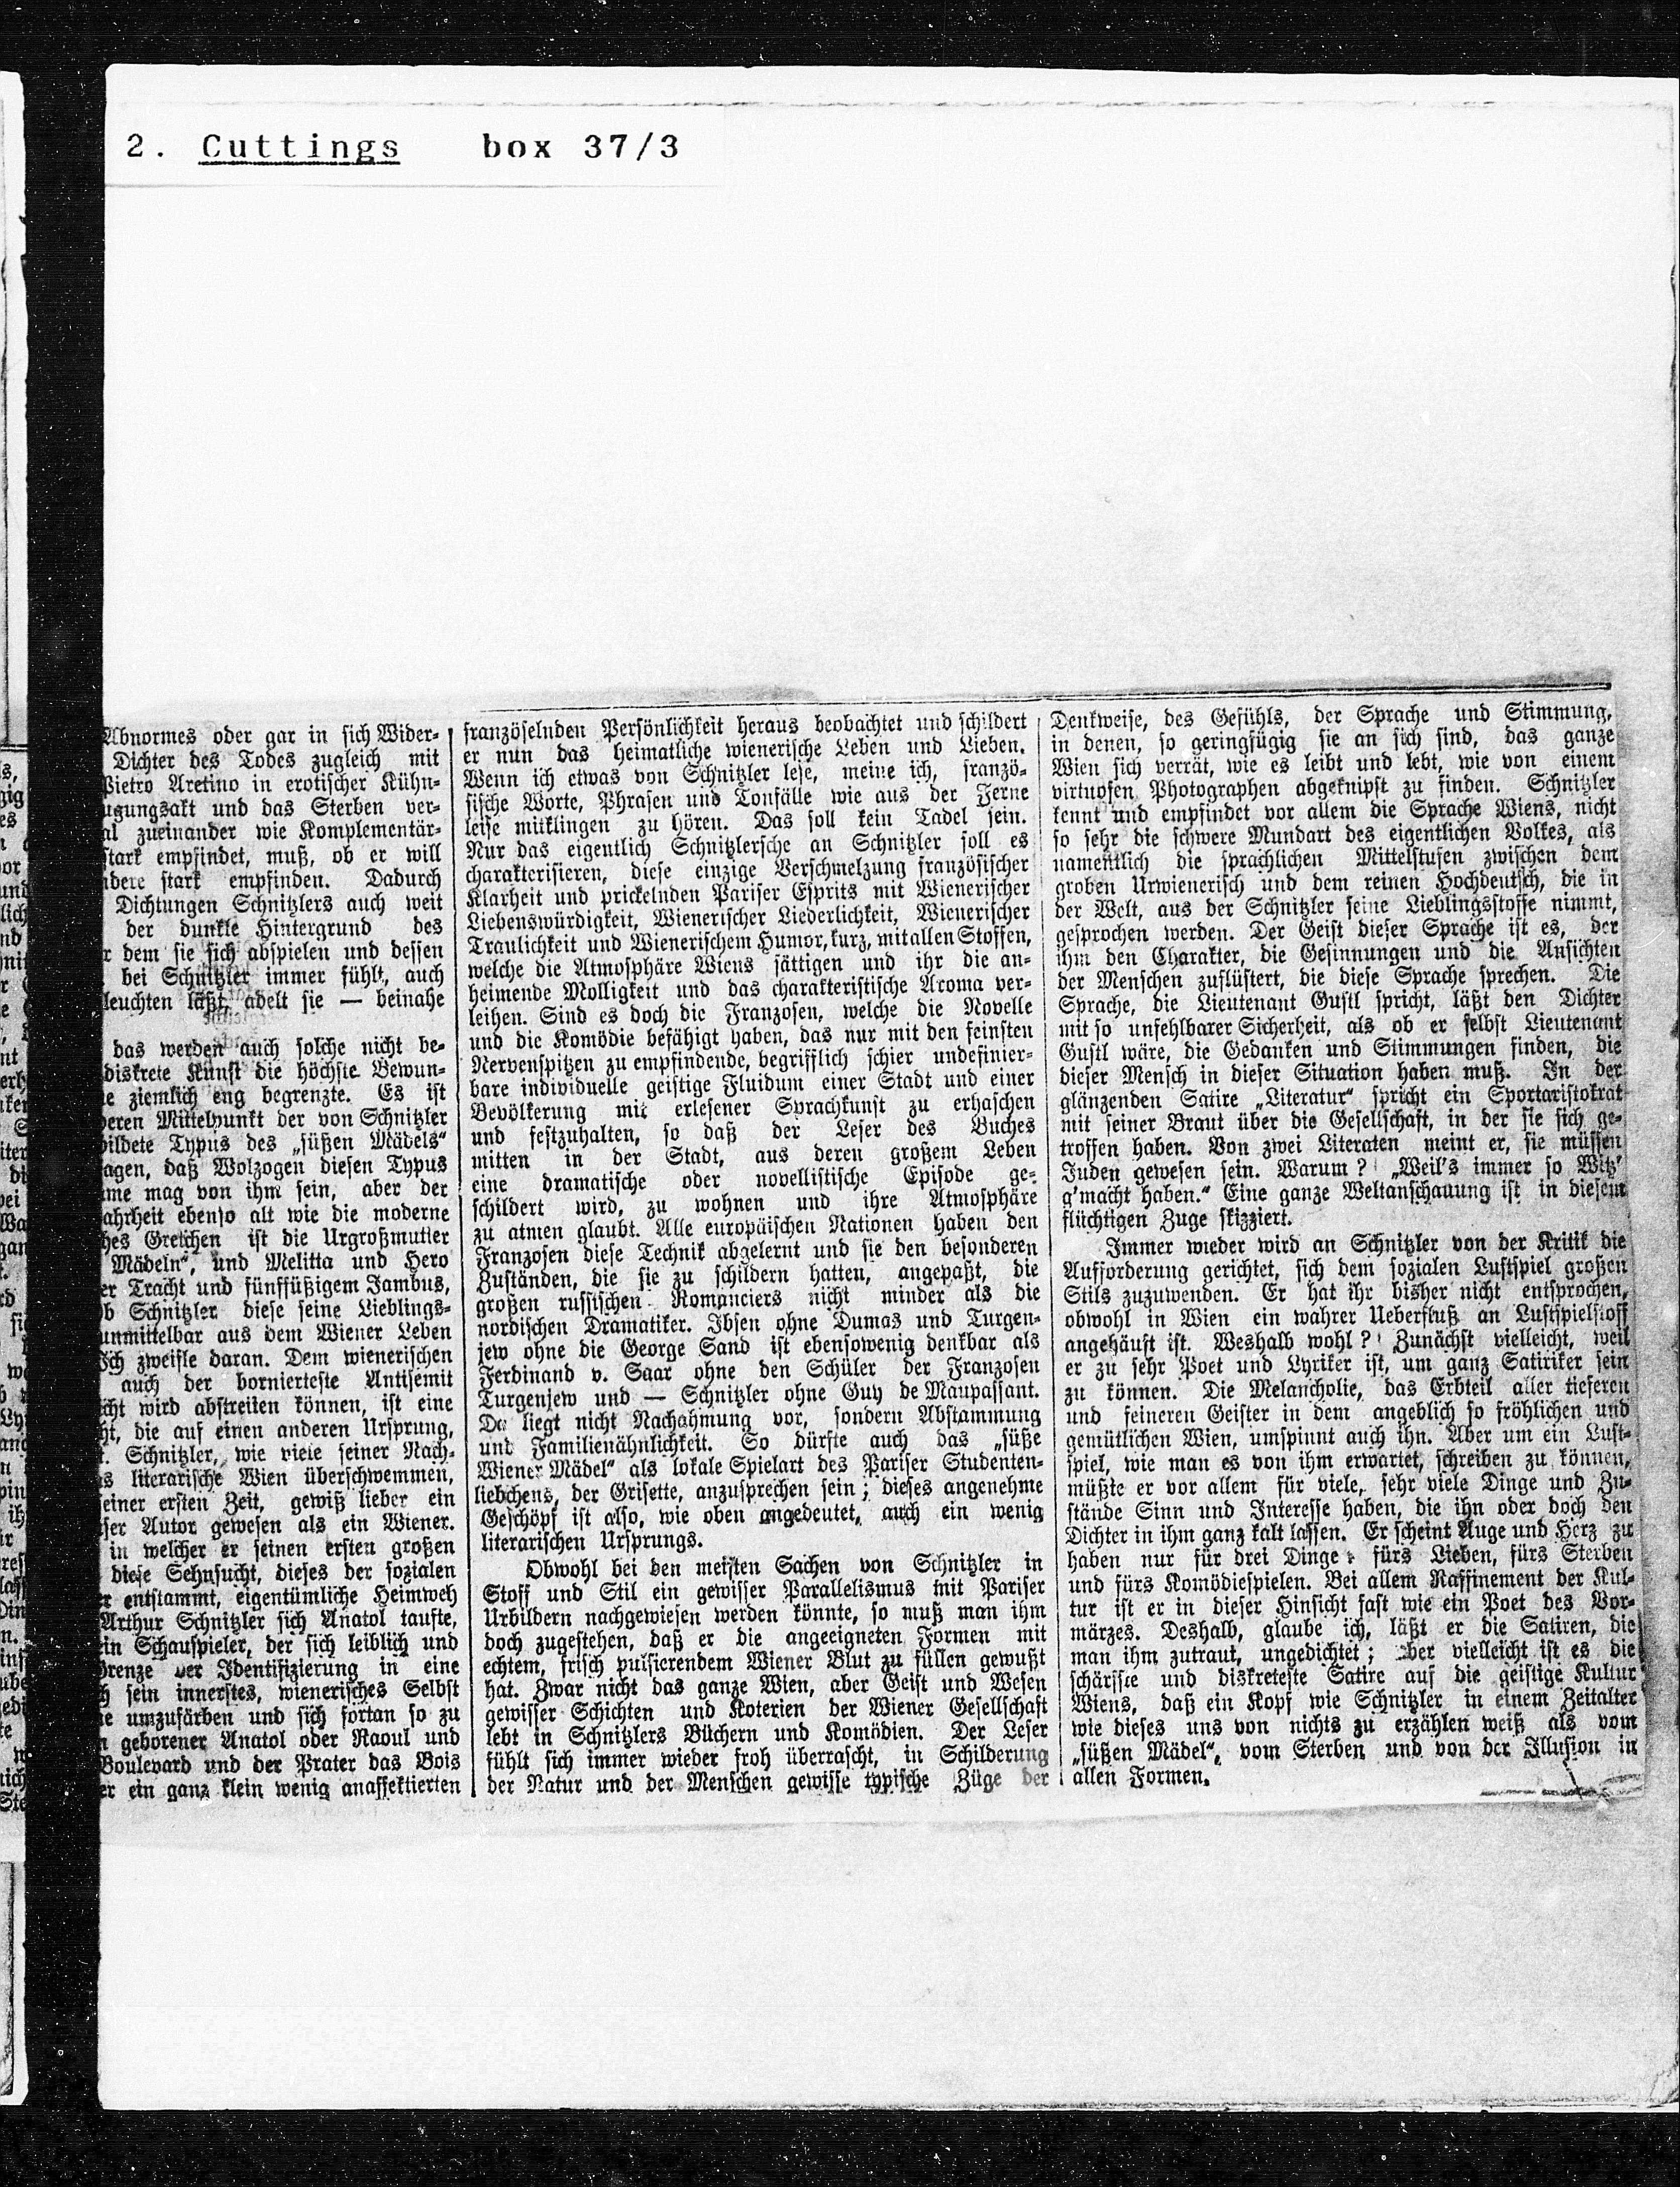 2. Cuttings box 37/3
Abnormes oder gar in sich Wider-
Dichter des Todes zugleich mit
Pietro Aretino in erotischer Kühn-
ugungsakt und das Sterben ver-
al zueinander wie Komplementär-
stark empfindet, muß, ob er will
ndere stark empfinden. Dadurch
Dichtungen Schnitzlers auch weit
der dunkle Hintergrund des
r dem sie sich abspielen und dessen
bei Schnitzler immer fühlt, auch
leuchten läßt, adelt sie — beinahe
das werden auch solche nicht be-
diskrete Kunst die höchste Bewun-
e ziemlich eng begrenzte. Es ist
deren Mittelpunkt der von Schnitzler
bildete Typus des „süßen Mädels“
agen, daß Wolzogen diesen Typus
ame mag von ihm sein, aber der
ahrheit ebenso alt wie die moderne
hes Gretchen ist die Urgroßmutter
Mädeln“, und Melitta und Hero
er Tracht und fünffüßigem Jambus,
b Schnitzler diese seine Lieblings-
unmittelbar aus dem Wiener Leben
Ich zweifle daran. Dem wienerischen
auch der bornierteste Antisemit
cht wird abstreiten können, ist eine
ht, die auf einen anderen Ursprung,
t. Schnitzler, wie viele seiner Nach-
as literarische Wien überschwemmen,
seiner ersten Zeit, gewiß lieber ein
iser Autor gewesen als ein Wiener.
in welcher er seinen ersten großen
diese Sehnsucht, dieses der sozialen
er entstammt, eigentümliche Heimweh
Arthur Schnitzler sich Anatol taufte,
ein Schauspieler, der sich leiblich und
Grenze der Identifizierung in eine
h sein innerstes, wienerisches Selbst
e umzufärben und sich fortan so zu
n geborener Anatol oder Raoul und
Boulevard und der Prater das Bois
er ein ganz klein wenig anaffektierten
französelnden Persönlichkeit heraus beobachtet und schildert
er nun das heimatliche wienerische Leben und Lieben.
Wenn ich etwas von Schnitzler lese, meine ich, franzö-
sische Worte, Phrasen und Tonfälle wie aus der Ferne
leise mitklingen zu hören. Das soll kein Tadel sein.
Nur das eigentlich Schnitzlersche an Schnitzler soll es
charakterisieren, diese einzige Verschmelzung französischer
Klarheit und prickelnden Pariser Esprits mit Wienerischer
Liebenswürdigkeit, Wienerischer Liederlichkeit, Wienerischer
Traulichkeit und Wienerischem Humor, kurz, mit allen Stoffen,
welche die Atmosphäre Wiens sättigen und ihr die an-
heimende Molligkeit und das charakteristische Aroma ver-
leihen. Sind es doch die Franzosen, welche die Novelle
und die Komödie befähigt haben, das nur mit den feinsten
Nervenspitzen zu empfindende, begrifflich schier undefinier-
bare individuelle geistige Fluidum einer Stadt und einer
Bevölkerung mit erlesener Sprachkunst zu erhaschen
und festzuhalten, so daß der Leser des Buches
mitten in der Stadt, aus deren großem Leben
eine dramatische oder novellistische Episode ge-
schildert wird, zu wohnen und ihre Atmosphäre
zu atmen glaubt. Alle europäischen Nationen haben den
Franzosen diese Technik abgelernt und sie den besonderen
Zuständen, die sie zu schildern hatten, angepaßt, die
großen russischen Romanciers nicht minder als die
nordischen Dramatiker. Ibsen ohne Dumas und Turgen-
jew ohne die George Sand ist ebensowenig denkbar als
Ferdinand v. Saar ohne den Schüler der Franzosen
Turgenjew und — Schnitzler ohne Guy de Maupassant.
Da liegt nicht Nachahmung vor, sondern Abstammung
und Familienähnlichkeit. So dürfte auch das „süße
Wiener Mädel“ als lokale Spielart des Pariser Studenten-
liebchens, der Grisette, anzusprechen sein; dieses angenehme
Geschöpf ist also, wie oben angedeutet, auch ein wenig
literarischen Ursprungs.
Obwohl bei den meisten Sachen von Schnitzler in
Stoff und Stil ein gewisser Parallelismus mit Pariser
Urbildern nachgewiesen werden könnte, so muß man ihm
doch zugestehen, daß er die angeeigneten Formen mit
echtem, frisch pulsierendem Wiener Blut zu füllen gewußt
hat. Zwar nicht das ganze Wien, aber Geist und Wesen
gewisser Schichten und Koterien der Wiener Gesellschaft
lebt in Schnitzlers Büchern und Komödien. Der Leser
fühlt sich immer wieder froh überrascht, in Schilderung
der Natur und der Menschen gewisse typische Züge der
Denkweise, des Gefühls, der Sprache und Stimmung,
in denen, so geringfügig sie an sich sind, das ganze
Wien sich verrät, wie es leibt und lebt, wie von einem
virtuosen Photographen abgeknipst zu finden. Schnitzler
kennt und empfindet vor allem die Sprache Wiens, nicht
so sehr die schwere Mundart des eigentlichen Volkes, als
namentlich die sprachlichen Mittelstufen zwischen dem
groben Urwienerisch und dem reinen Hochdeutsch, die in
der Welt, aus der Schnitzler seine Lieblingsstoffe nimmt,
gesprochen werden. Der Geist dieser Sprache ist es, der
ihm den Charakter, die Gesinnungen und die Ansichten
der Menschen zuflüstert, die diese Sprache sprechen. Die
Sprache, die Lieutenant Gustl spricht, läßt den Dichter
mit so unfehlbarer Sicherheit, als ob er selbst Lieutenant
Gustl wäre, die Gedanken und Stimmungen finden, die
dieser Mensch in dieser Situation haben muß. In der
glänzenden Satire „Literatur“ spricht ein Sportaristokrat
mit seiner Braut über die Gesellschaft, in der sie sich ge-
troffen haben. Von zwei Literaten meint er, sie müssen
Juden gewesen sein. Warum? „Weil's immer so Witz'
g'macht haben.“ Eine ganze Weltanschauung ist in diesem
flüchtigen Zuge skizziert.
Immer wieder wird an Schnitzler von der Kritik die
Aufforderung gerichtet, sich dem sozialen Lustspiel großen
Stils zuzuwenden. Er hat ihr bisher nicht entsprochen,
obwohl in Wien ein wahrer Ueberfluß an Lustspielstoff
angehäuft ist. Weshalb wohl? Zunächst vielleicht, weil
er zu sehr Poet und Lyriker ist, um ganz Satiriker sein
zu können. Die Melancholie, das Erbteil aller tieferen
und feineren Geister in dem angeblich so fröhlichen und
gemütlichen Wien, umspinnt auch ihn. Aber um ein Lust-
spiel, wie man es von ihm erwartet, schreiben zu können,
müßte er vor allem für viele, sehr viele Dinge und Zu-
stände Sinn und Interesse haben, die ihn oder doch den
Dichter in ihm ganz kalt lassen. Er scheint Auge und Herz zu
haben nur für drei Dinge: fürs Lieben, fürs Sterben
und fürs Komödiespielen. Bei allem Raffinement der Kul-
tur ist er in dieser Hinsicht fast wie ein Poet des Vor-
märzes. Deshalb, glaube ich, läßt er die Satiren, die
man ihm zutraut, ungedichtet; aber vielleicht ist es die
schärfste und diskreteste Satire auf die geistige Kultur
Wiens, daß ein Kopf wie Schnitzler in einem Zeitalter
wie dieses uns von nichts zu erzählen weiß als vom
„süßen Mädel“, vom Sterben und von der Illusion in
allen Formen.